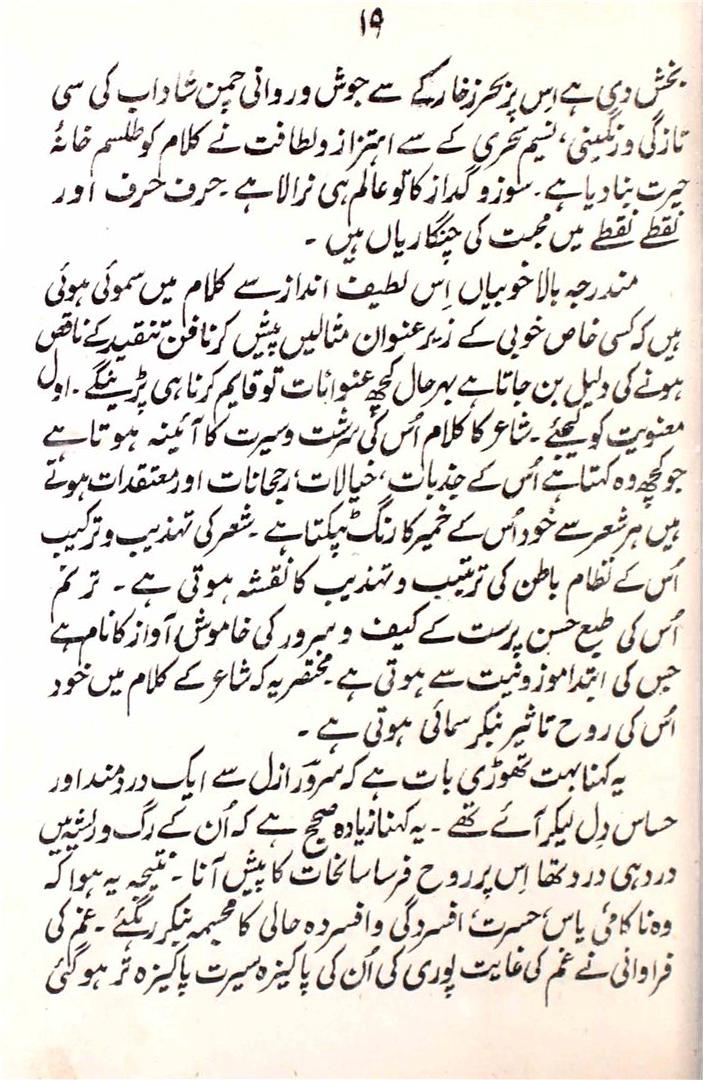 ۱۹
بخش دی ہے اِس پر بحرِ زخار کے سے جوش و روانی چمن شاداب کی سی
تازگی و رنگینی، نسیم سحری کے سے اہتزاز و لطافت نے کلام کو طلسم خانۂ
حیرت بنا دیا ہے۔ سوز و گداز کا تو عالم ہی نرالا ہے۔ حرف حرف اور
نقطے نقطے میں محبت کی چنگاریاں ہیں۔
مندرجہ بالا خوبیاں اِس لطیف انداز سے کلام میں سموئی ہوئی
ہیں کہ کسی خاص خوبی کے زیر عنوان مثالیں پیش کرنا فن تنقید کے ناقص
ہونے کی دلیل بن جاتا ہے بہرحال کچھ عنوانات تو قایم کرنا ہی پڑینگے۔ اول
معنویت کو لیجئے۔ شاعر کا کلام اُس کی سرشت و سیرت کا آئینہ ہوتا ہے
جو کچھ وہ کہتا ہے اُس کے جذبات، خیالات، رجحانات اور معتقدات ہوتے
ہیں ہر شعر سے خود اُس کے خمیر کا رنگ ٹپکتا ہے۔ شعر کی تہذیب و ترکیب
اُس کے نظام باطن کی ترتیب و تہذیب کا نقشہ ہوتی ہے۔ ترنم
اُس کی طبع حسن پرست کے کیف و سرور کی خاموش آواز کا نام ہے
جس کی ابتدا موزونیت سے ہوتی ہے۔ مختصر یہ کہ شاعر کے کلام میں خود
اُس کی روح تاثیر بنکر سمائی ہوتی ہے۔
یہ کہنا بہت تھوڑی بات ہے کہ سرورؔ ازل سے ایک درد مند اور
حساس دِل لیکر آئے تھے۔ یہ کہنا زیادہ صحیح ہے کہ اُن کے رگ و ریشہ میں
درد ہی درد تھا اِس پر روح فرسا سانحات کا پیش آنا۔ نتیجہ یہ ہوا کہ
وہ ناکامی، یاس، حسرت، افسردگی و افسردہ حالی کا مجسمہ بنکر رہگئے۔ غم کی
فراوانی نے غم کی غایت پوری کی اُن کی پاکیزہ سیرت پاکیزہ تر ہو گئی